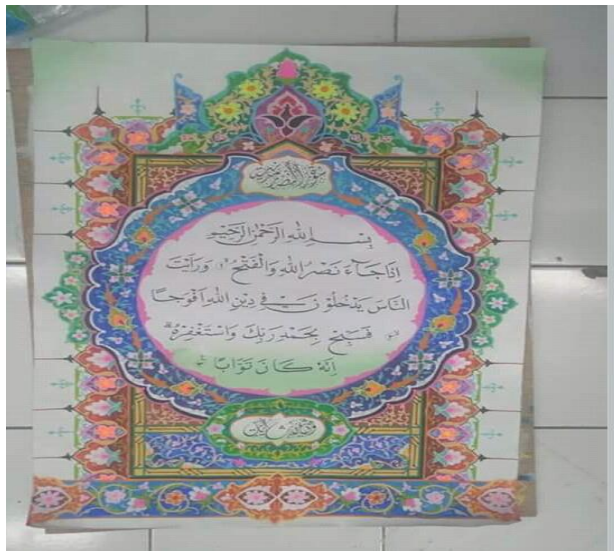 سورة النصر
بسم الله الرحمن الرحيم
اذا جاء نصر الله والفتح ورايت
الناس يدخلون في دين الله افوجا
فسبح بحمد ربك واستغفره
انه كان توابا